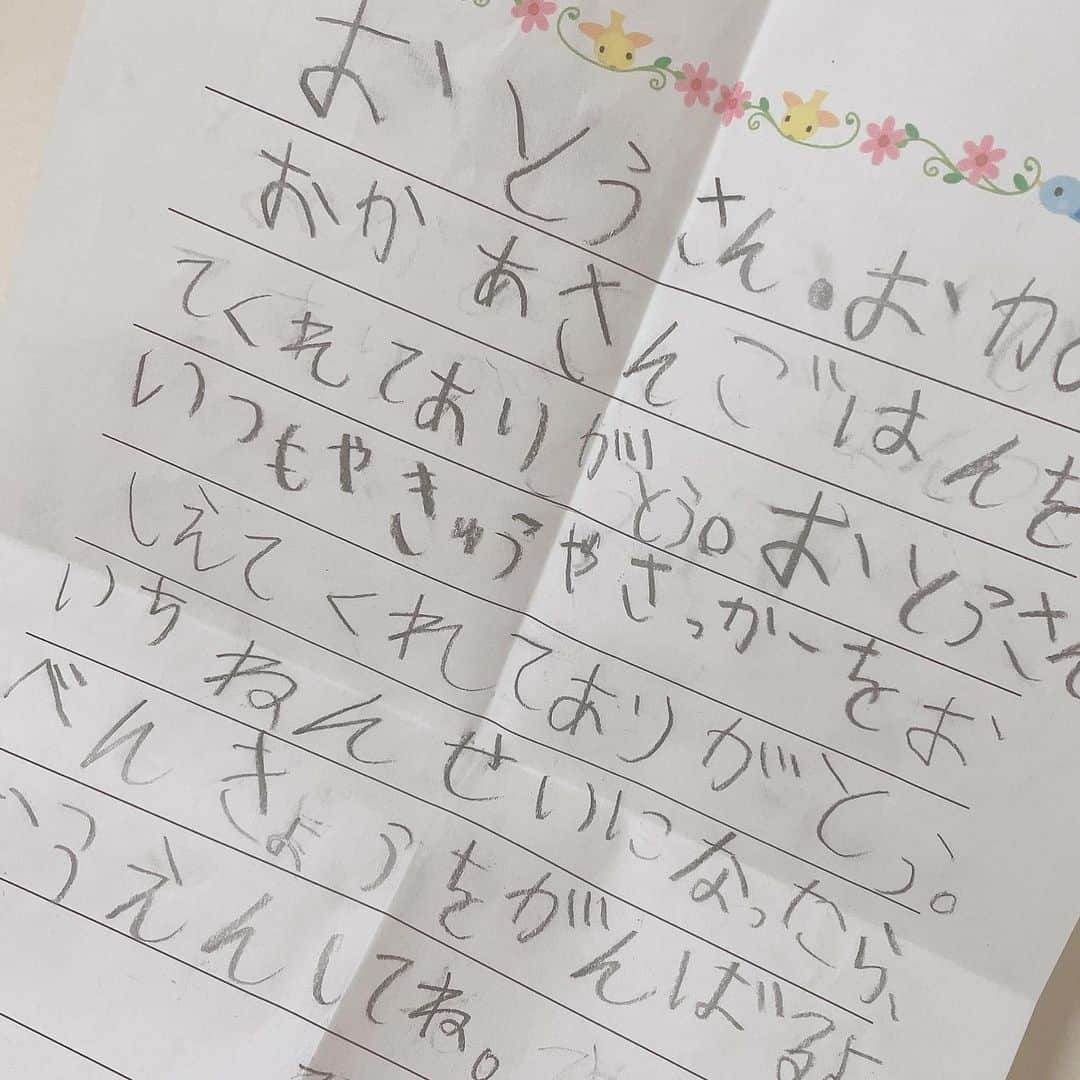 おとうさん・おか
おかあさんごはんを
てくれてありがとう。おとうさん
いつもやきゅうやさっかーをお
しえてくれてありがとう。
いちねんせいになったら、
べんきょうをがんばるよ
うえんしてね。